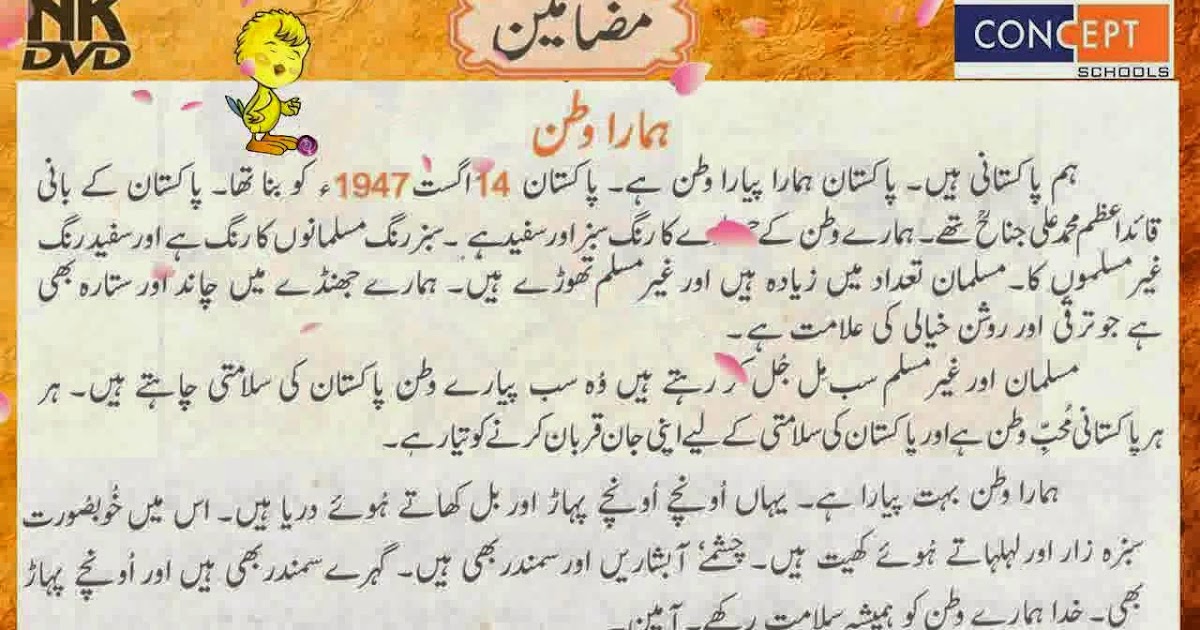 NK
DVD
مضامین
CONCEPT
SCHOOLS
ہمارا وطن
ہم پاکستانی ہیں۔ پاکستان ہمارا پیارا وطن ہے۔ پاکستان 14 اگست 1947ء کو بنا تھا۔ پاکستان کے بانی
قائداعظم محمد علی جناحؒ تھے۔ ہمارے وطن کے کا رنگ سبز اور سفید ہے۔ سبز رنگ مسلمانوں کا رنگ ہے اور سفید رنگ
غیر مسلموں کا۔ مسلمان تعداد میں زیادہ ہیں اور غیر مسلم تھوڑے ہیں۔ ہمارے جھنڈے میں چاند اور ستارہ بھی
ہے جو ترقی اور روشن خیالی کی علامت ہے۔
مسلمان اور غیر مسلم سب مِل جُل کر رہتے ہیں وُہ سب پیارے وطن پاکستان کی سلامتی چاہتے ہیں۔ ہر
ہر پاکستانی مُحبِّ وطن ہے اور پاکستان کی سلامتی کے لیے اپنی جان قربان کرنے کو تیار ہے۔
ہمارا وطن بہت پیارا ہے۔ یہاں اُونچے اُونچے پہاڑ اور بل کھاتے ہُوئے دریا ہیں۔ اس میں خُوبصُورت
سبزہ زار اور لہلہاتے ہُوئے کھیت ہیں۔ چشمے، آبشاریں اور سمندر بھی ہیں۔ گہرے سمندر بھی ہیں اور اُونچے پہاڑ
بھی۔ خدا ہمارے وطن کو ہمیشہ سلامت رکھے۔ آمین۔